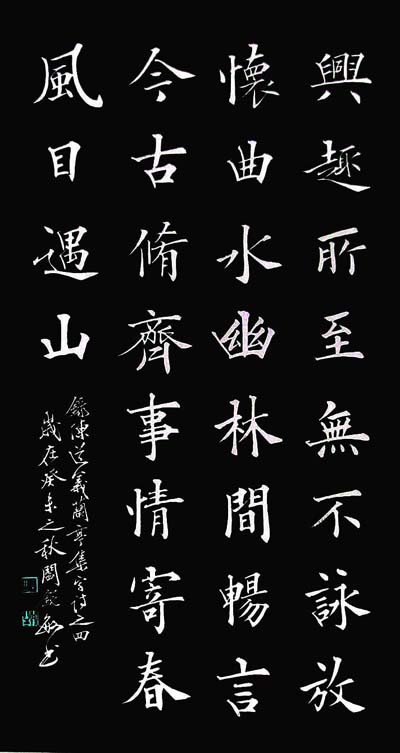 興趣所至無不詠放
懷曲水幽林間暢言
今古脩齊事情寄春
風目遇山
錄陳義蘭亭集字詩之四
歲在癸未之秋敏書